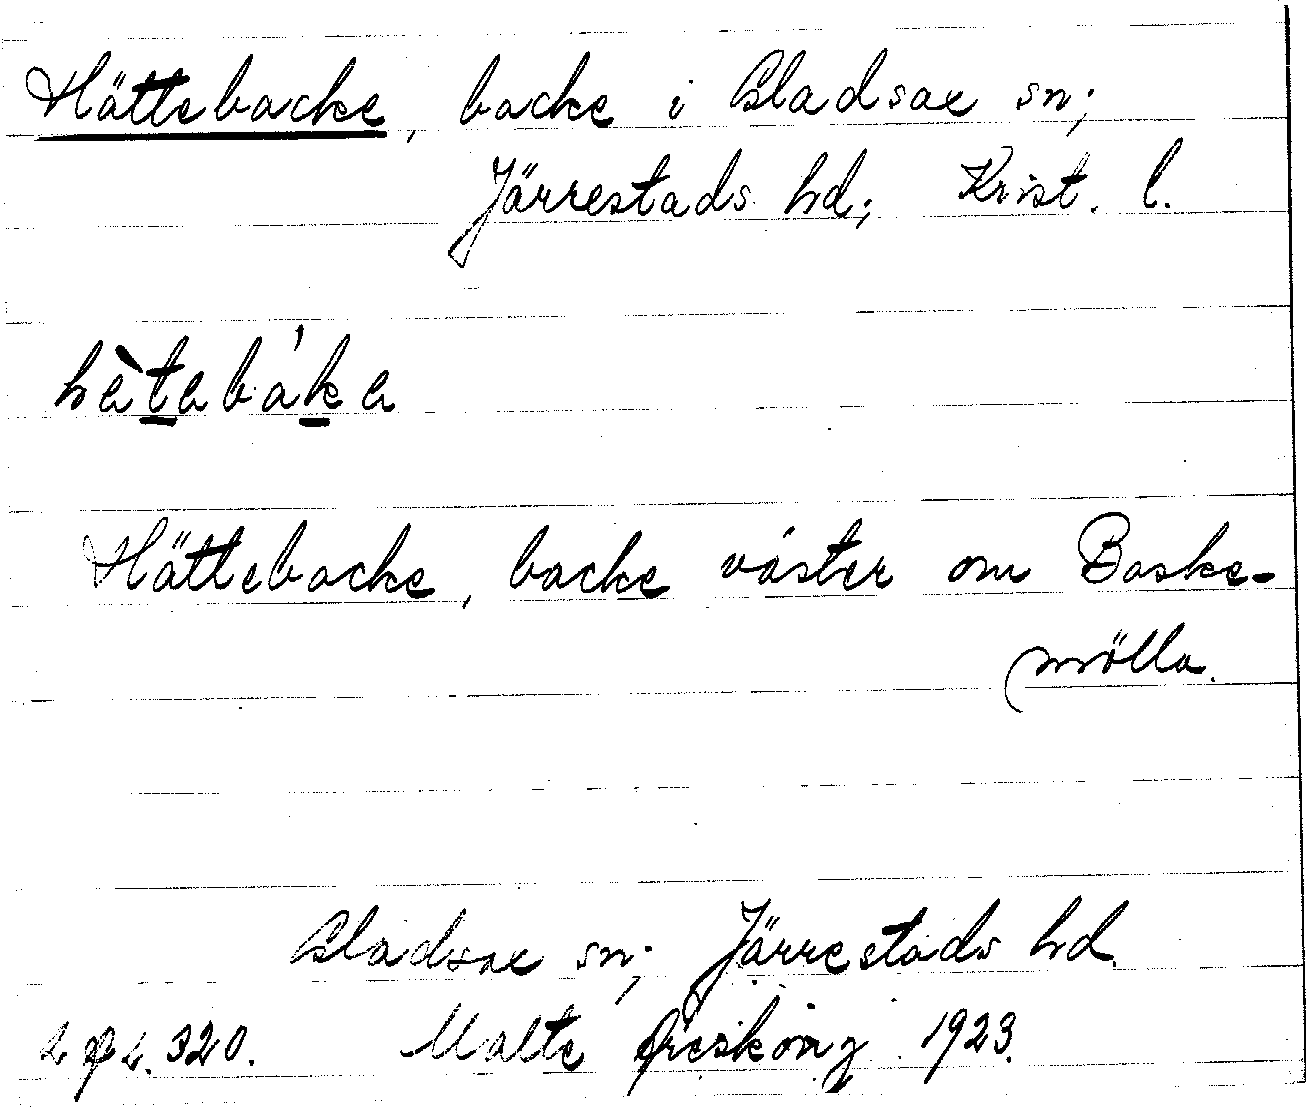 Hättebacke, backe i Gladsax sn;
Järrestads hd; Krist. l.
hètabáka
Hättebacke, backe väster om Baske-
mölla.
Gladsax sn; Järrestads hd.
320. Malte Areskoug 1923.